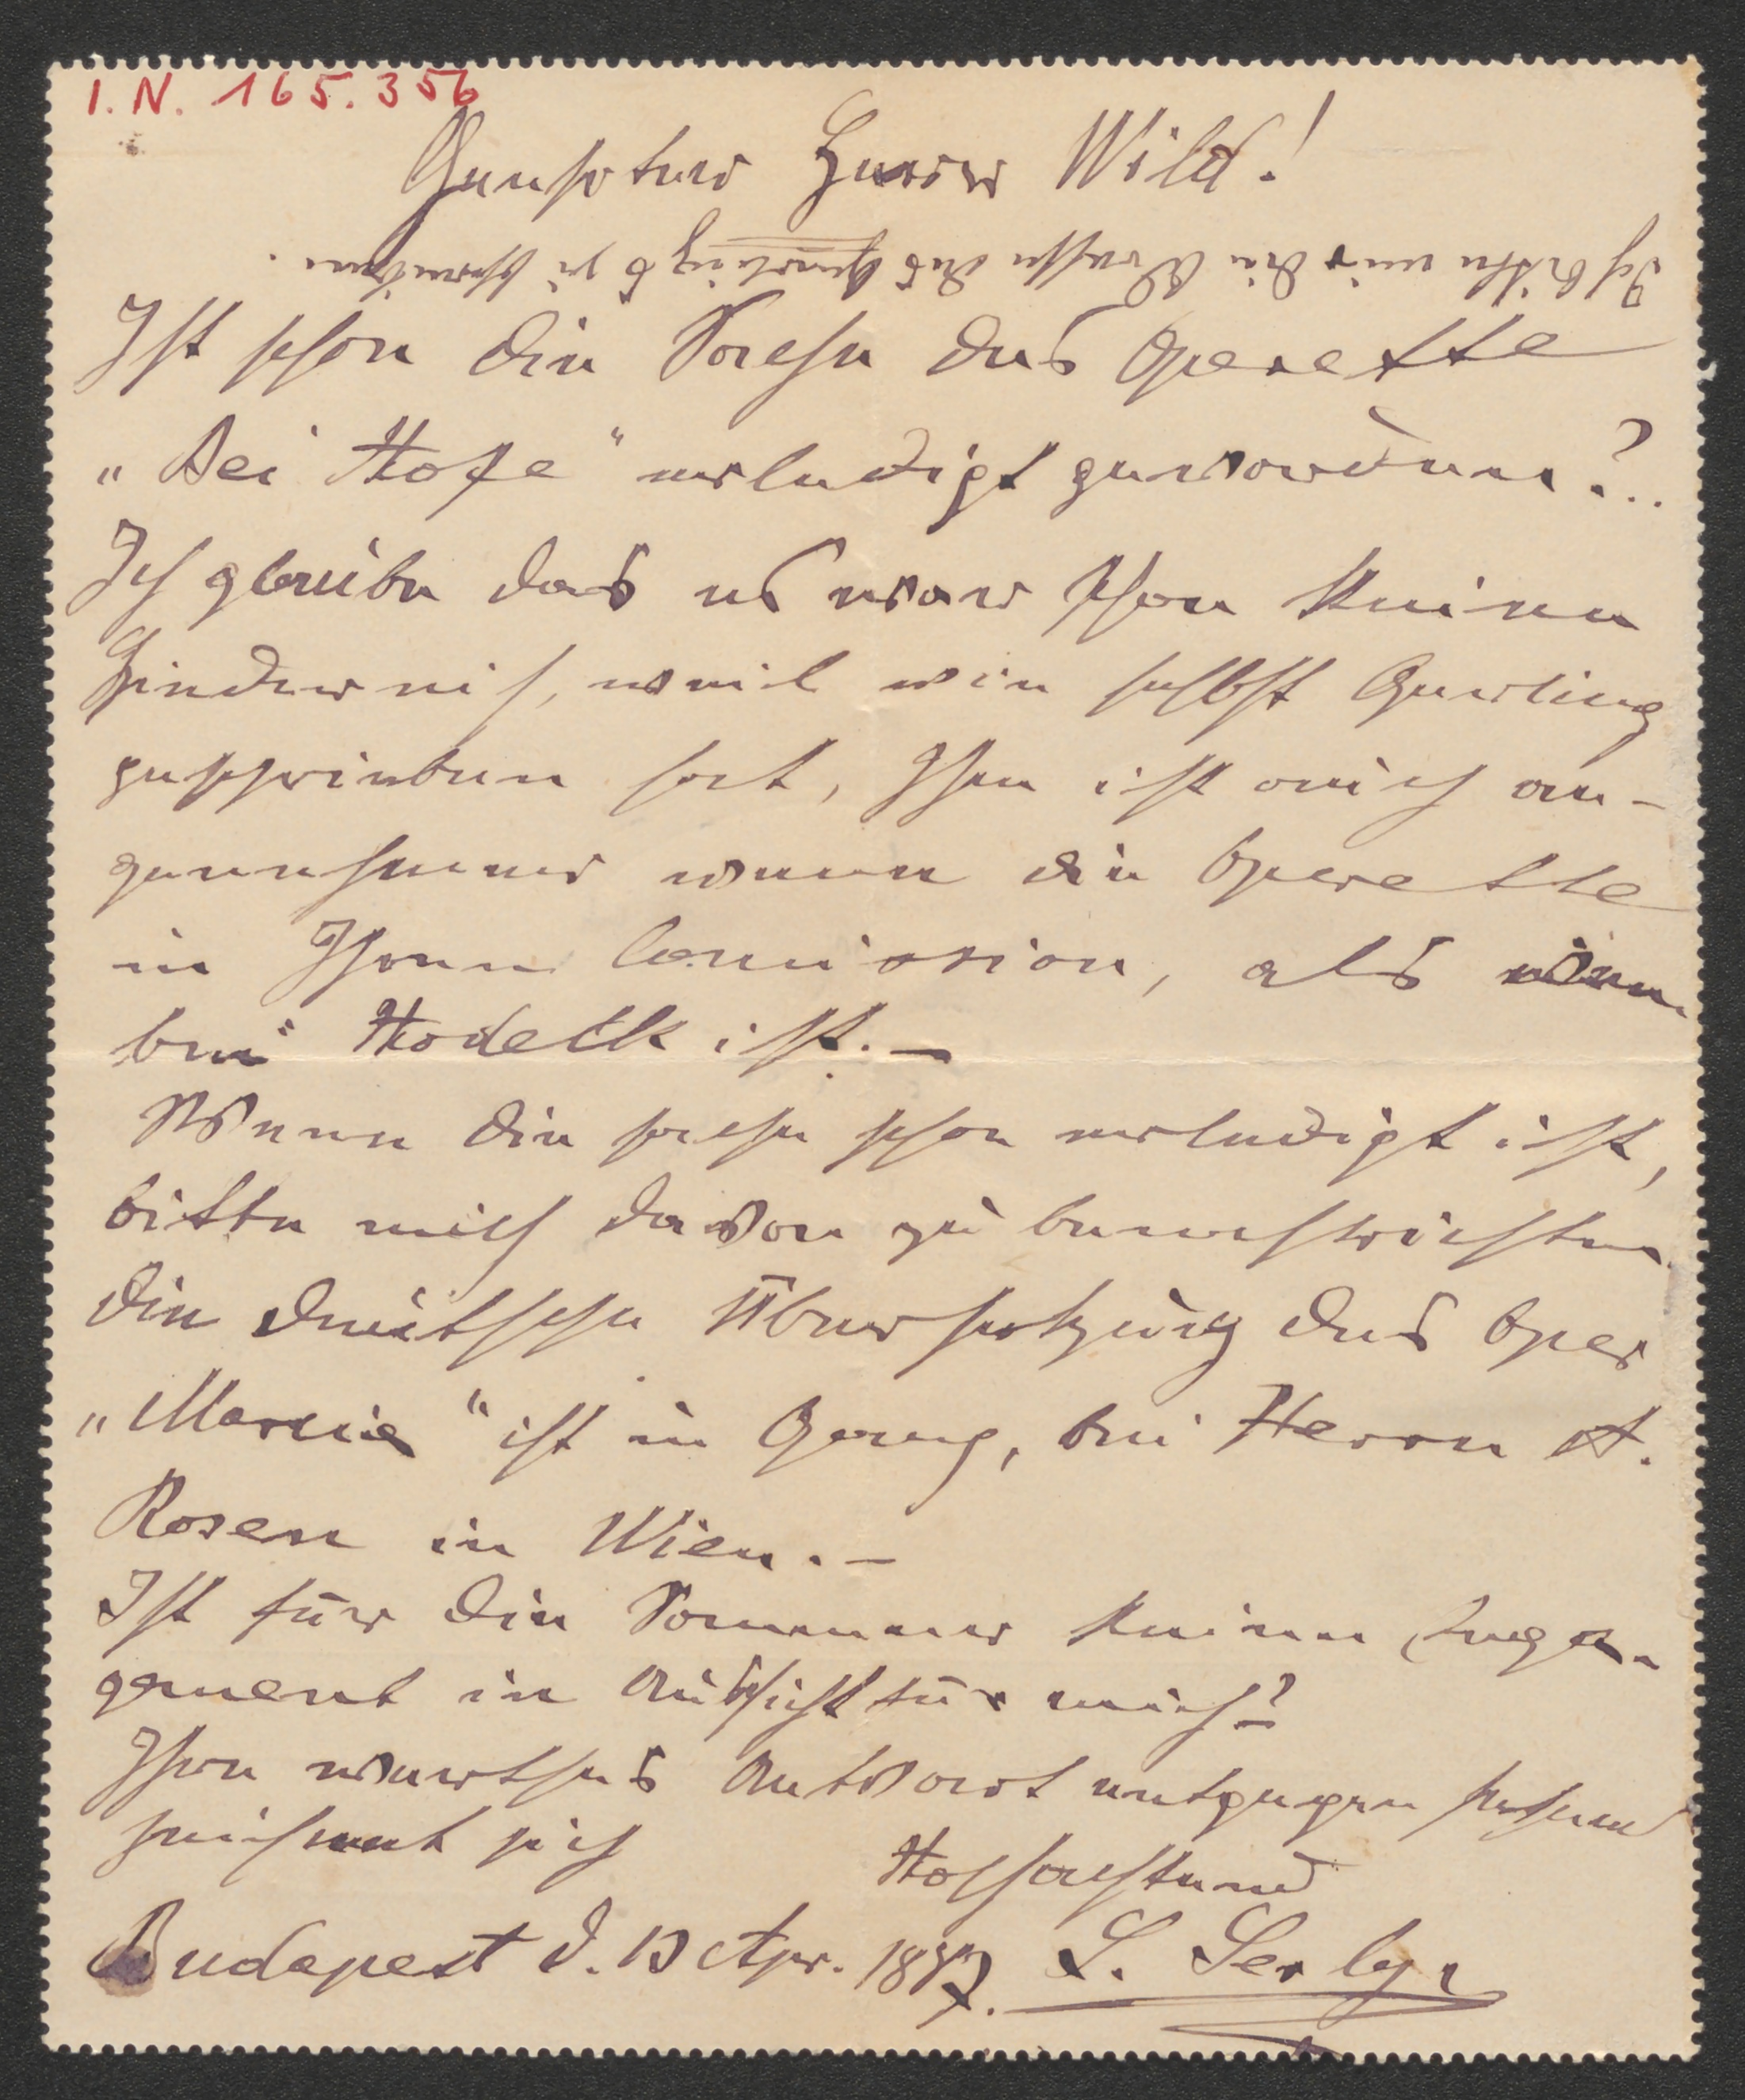 I.N. 165.356
Geehrter Herr Wild!
Ich bitte mir die Adresse des Gerlings zu schreiben.
Ist schon die Sache des Operette
„Bei Hofe" erledigt geworden?..
Ich glaube das es war schon keine
Hinderniß, weil wie selbst Gerling
geschrieben hat, Ihn ist auch an-
genehmer wenn die Operette
in Ihren Comission, als
bei Hodelk ist.—
Wenn die sache schon erledigt ist,
bitte mich davon zu benachrichten
die deutsche Übersetzung des Oper
„Marcia" ist in Gang, bei Herrn A.
Rosen in Wien.—
Ist für die Sommer keine Enga-
gement in Aussicht für mich?
Ihre werthes Antwort entgegen sehend
zeichnet sich
Hochachtend
Budapest d. 13 Apr. 1887. L. Serly